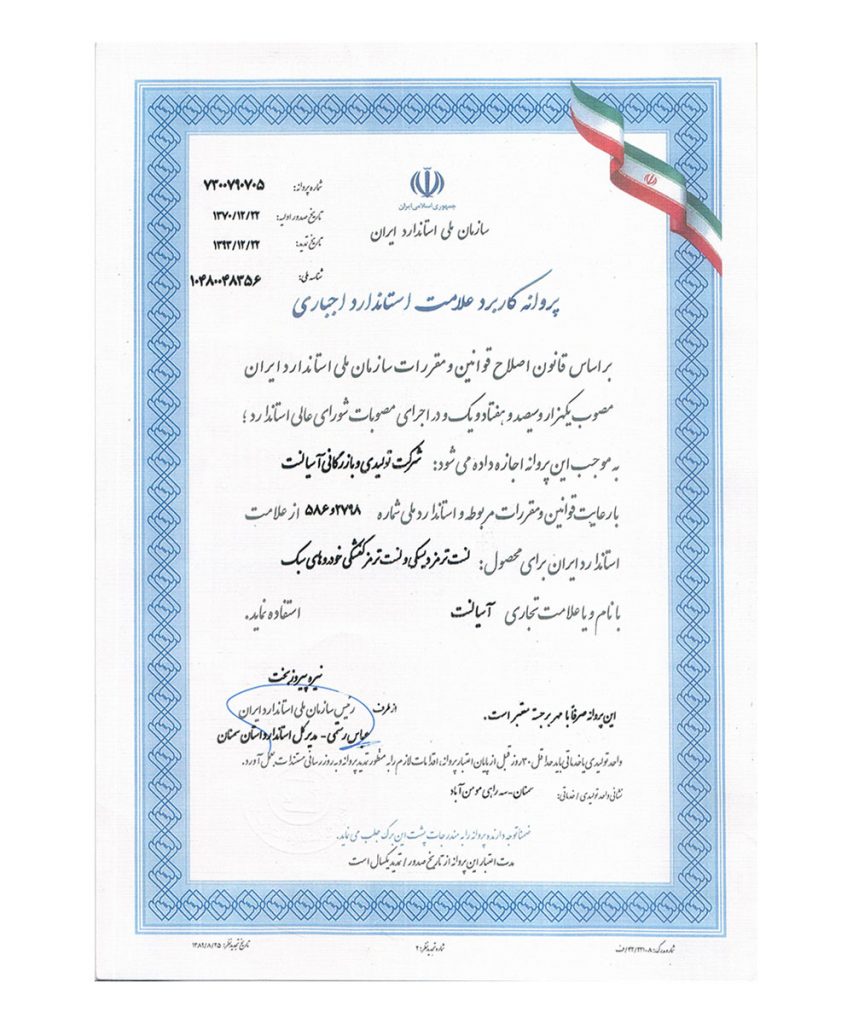 جمهوری اسلامی ایران
سازمان ملی استاندارد ایران
شماره پروانه: ۷۳۰۰۷۹۰۷۰۵
تاریخ صدور اولیه: ۱۳۷۰/۱۲/۲۲
تاریخ تمدید: ۱۳۹۳/۱۲/۲۲
شناسه ملی: ۱۰۴۸۰۰۴۸۳۵۶
پروانه کاربرد علامت استاندارد اجباری
بر اساس قانون اصلاح قوانین و مقررات سازمان ملی استاندارد ایران
مصوب یکهزار و سیصد و هفتاد و یک و در اجرای مصوبات شورای عالی استاندارد ؛
به موجب این پروانه اجازه داده می شود: شرکت تولیدی و بازرگانی آسیا لنت
با رعایت قوانین و مقررات مربوطه و استاندارد ملی شماره ۲۷۹۸و۵۸۶ از علامت
استاندارد ایران برای محصول: لنت ترمز دیسکی و لنت ترمز کفشکی خودروهای سبک
با نام و یا علامت تجاری آسیا لنت استفاده نماید.
نیره پیروز بخت
رئیس سازمان ملی استاندارد ایران
از طرف
عباس رستمی - مدیر کل استاندارد استان سمنان
این پروانه صرفاً با مهر برجسته معتبر است.
واحد تولیدی یا خدماتی باید حداقل ۳۰ روز قبل از پایان اعتبار پروانه، اقدامات لازم را به منظور تمدید پروانه و به روز رسانی مستندات بعمل آورد.
نشانی واحد تولیدی / خدماتی: سمنان-سه راهی مومن آباد
ضمناً توجه دارنده پروانه را به مندرجات پشت این برگ جلب می نماید.
مدت اعتبار این پروانه از تاریخ صدور / تمدید یکسال است
شماره تجدید نظر: ۲
تاریخ تجدید نظر: ۱۳۸۹/۸/۲۵